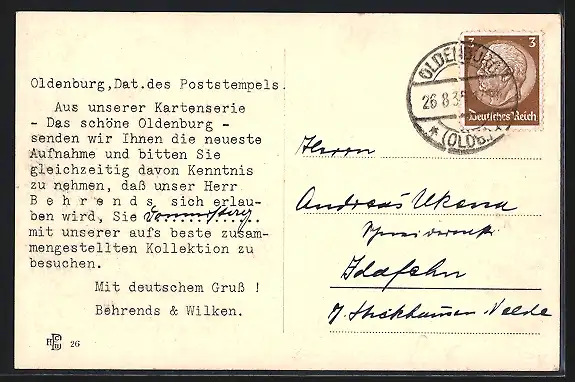 Oldenburg, Dat. des Poststempels.
Aus unserer Kartenserie
- Das schöne Oldenburg -
senden wir Ihnen die neueste
Aufnahme und bitten Sie
gleichzeitig davon Kenntnis
zu nehmen, daß unser Herr
Behrends sich erlau-
ben wird, Sie Donnerstag
mit unserer aufs beste zusam-
mengestellten Kollektion zu
besuchen.
Mit deutschem Gruß !
Behrends & Wilken.
26
OLDENBURG
26.8.3
(OLDB.)
3 3
Deutsches Reich
Herrn
Andreas Ukena
Idafehn